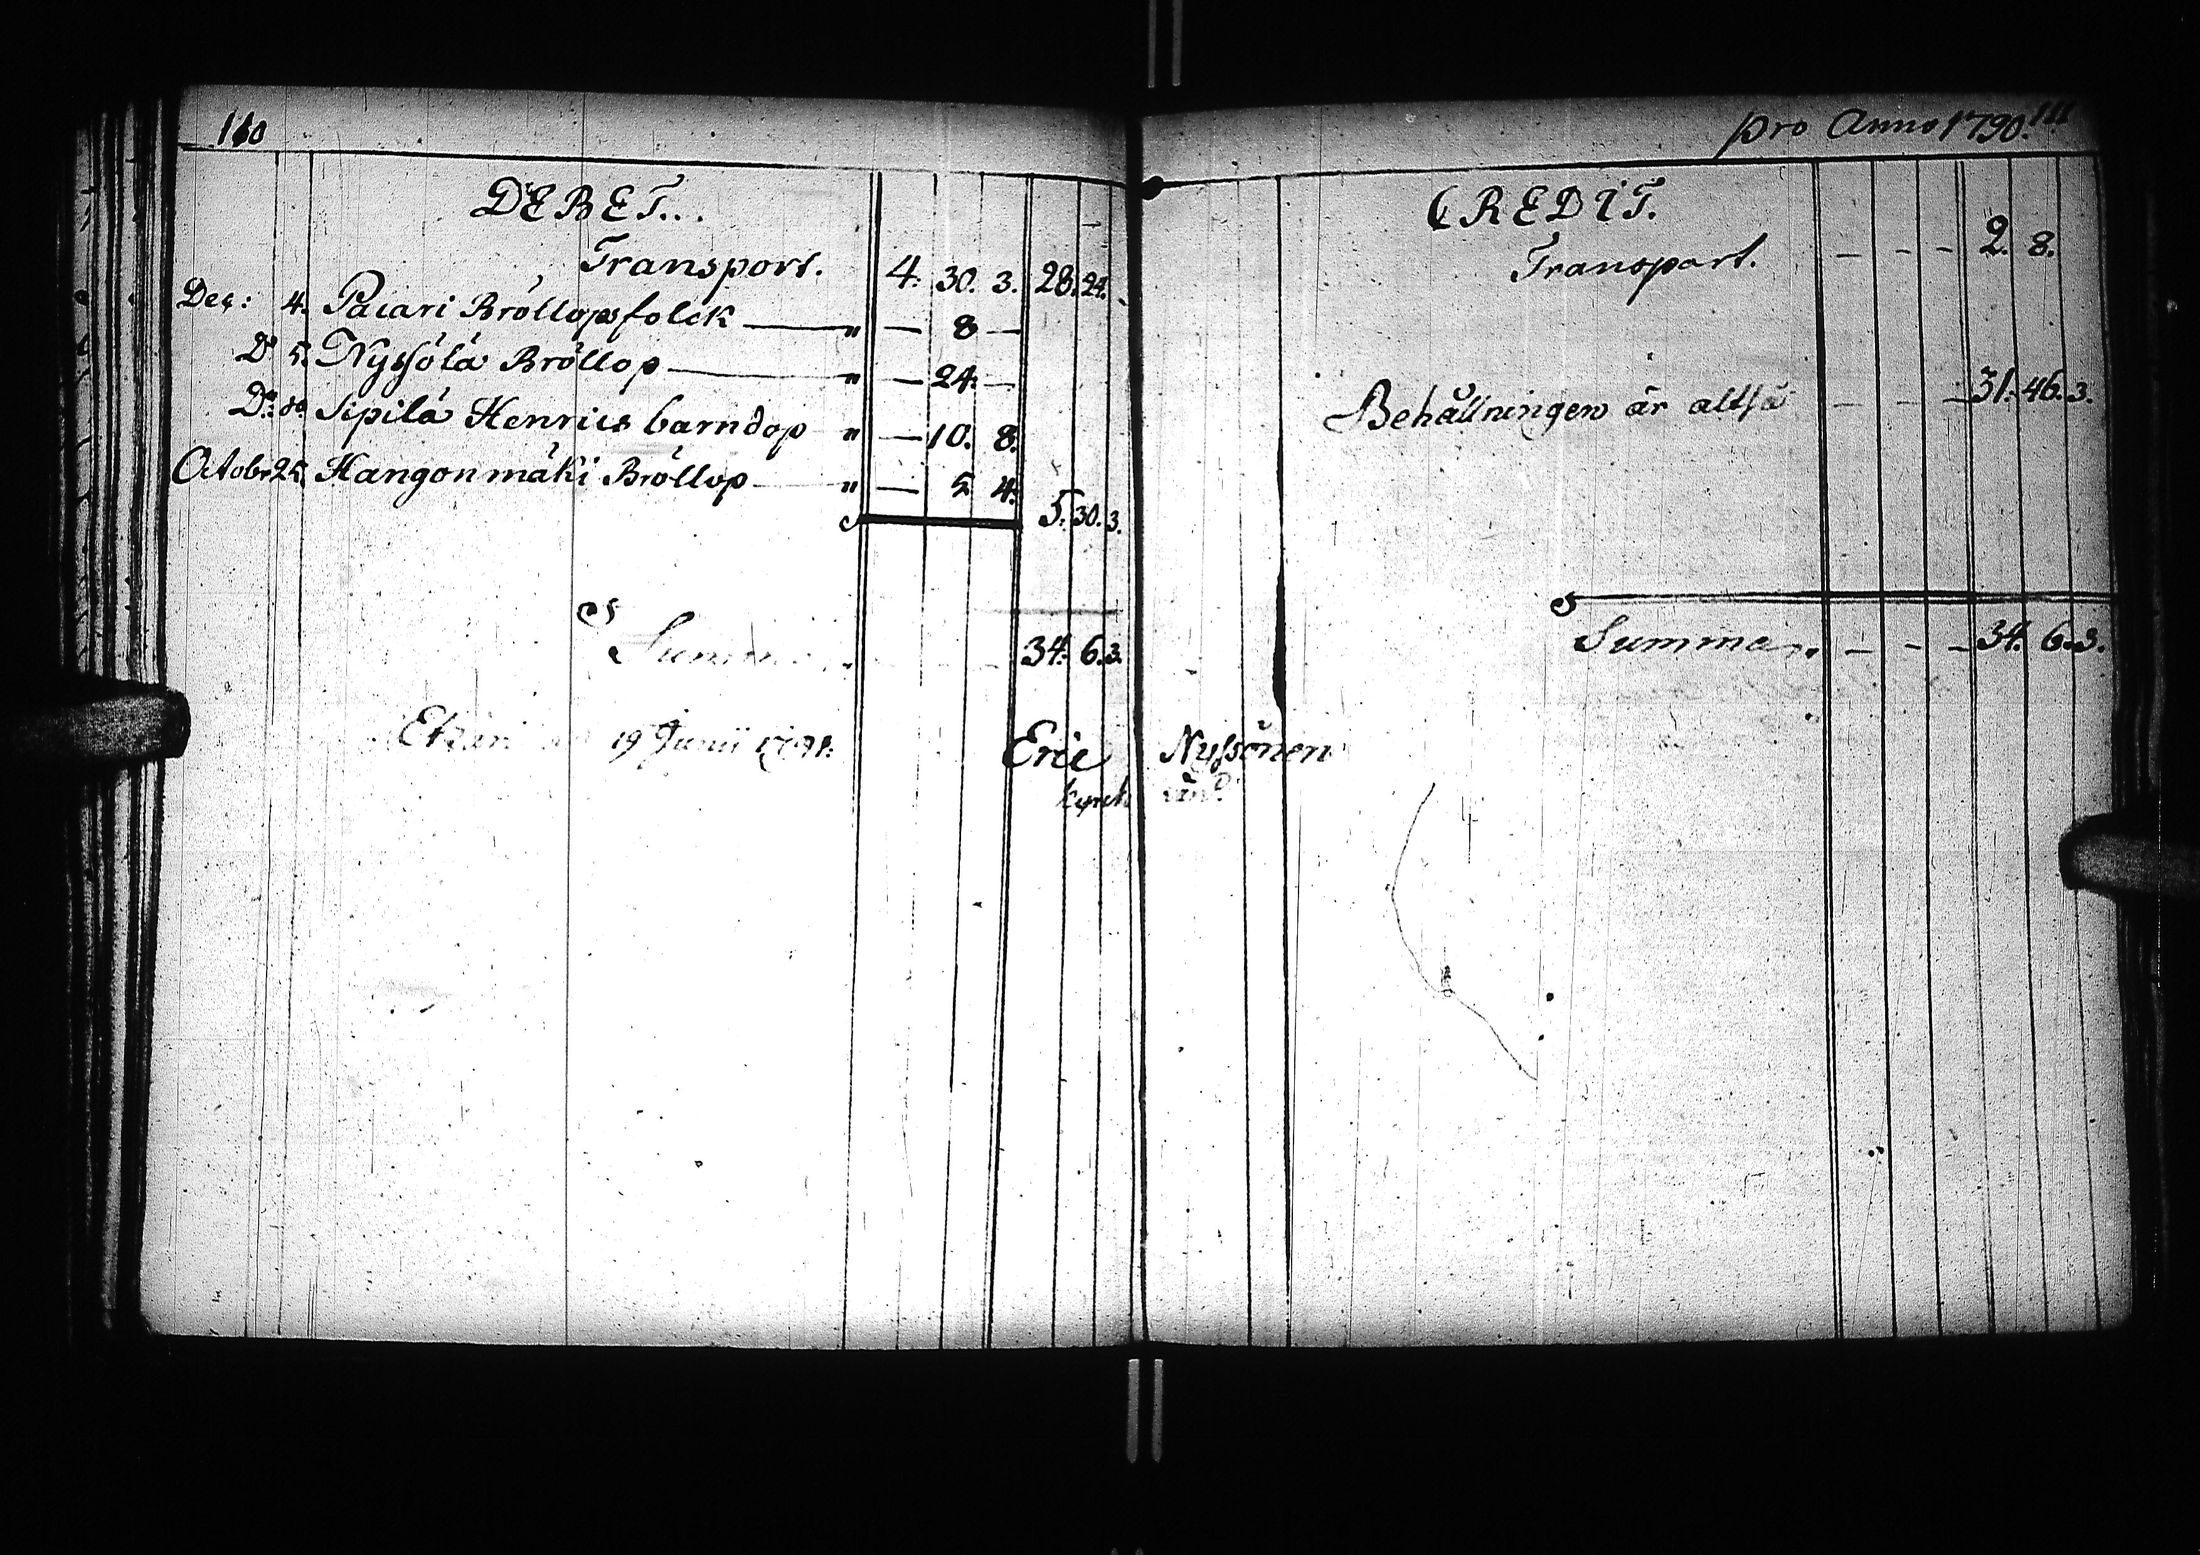 110
DEBET.
Transport. 4. 30. 3. 28. 24.
Dec: 4. Paiari Bröllopsfolck — " — 8 —
Do 5. Nyssölä Bröllop — " — 24. —
Do Sipilä Henrics barndop " — 10. 8.
Octobr 25. Hangonmäki Bröllop — " — 5 4. 5. 30. 3.
Summa 34. 6. 3.
19 Junii 1791.
Eric Nyssönen
pro Anno 1790. 111
CREDIT.
Transport. — — — 2. 8.
Behållningen är altså — — — 31. 46. 3.
Summa. — — — 34. 6. 3.